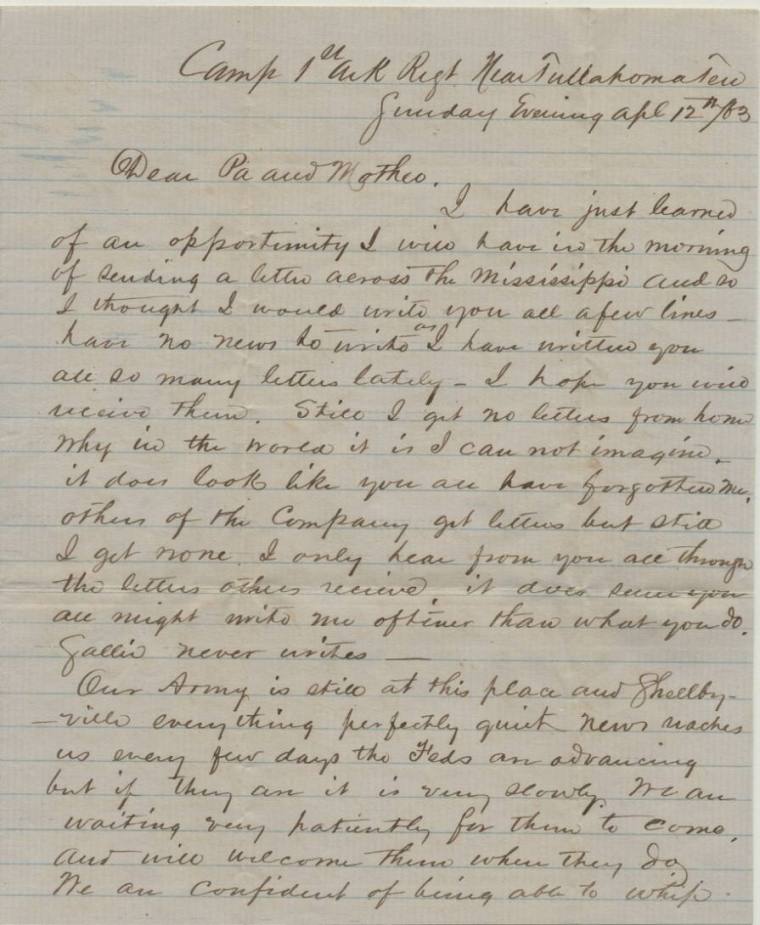 Camp 1st Ark Regt. Near Tullahoma Ten
Sunday Evening Apl 12th/63
Dear Pa and Mother.
I have just learned
of an opportunity I will have in the morning
of sending a letter across the Mississippi and so
I thought I would write you all a few lines –
have no news to write as I have written you
all so many letters lately – I hope you will
receive them. Still I get no letters from home
why in the world it is I can not imagine.
it does look like you all have forgotten me.
others of the Company get letters but still
I get none. I only hear from you all through
the letters others recieve. it does seem you
all might write me oftiner than what you do.
Sallie never writes —
Our Army is still at this place and Shelby-
-ville everything perfectly quiet news reaches
us every few days the Feds are advancing
but if they are it is very slowly. We are
waiting very patiently for them to come,
and will welcome them when they do
We are confident of being able to whip